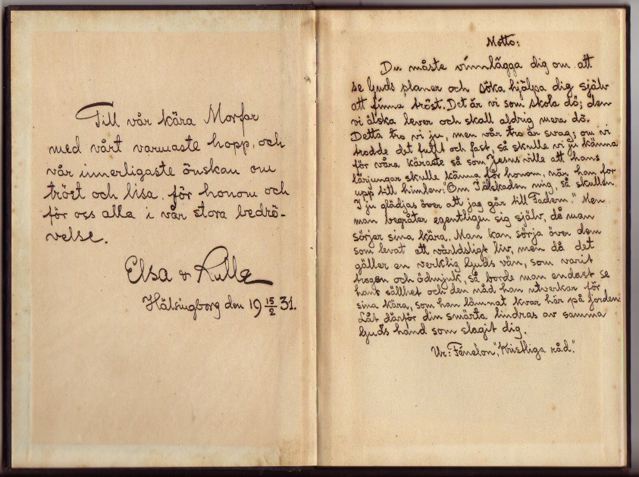 Till vår kära Morfar
med vårt varmaste hopp, och
vår innerligaste önskan om
tröst och lisa, för honom och
för oss alla i vår stora bedrö-
velse.
Elsa & Kulle
Hälsingborg den 19 15/2 31.
Motto:
Du måste vinnlägga dig om att
se Guds planer och söka hjälpa dig själv
att finna tröst. Det är vi som skola dö; den
vi älska lever och skall aldrig mera dö.
Detta tro vi ju, men vår tro är svag; om vi
trodde det fullt och fast, så skulle vi ju känna
för våra käraste så som Jesus ville att hans
lärjungar skulle känna för honom, när han for
upp till himlen: "Om I älskaden mig, så skullen
I ju glädjas över att jag går till Fadern." Men
man begråter egentligen sig själv, då man
sörjer sina kära. Man kan sörja över den
som levat ett världsligt liv, men då det
gäller en verklig Guds vän, som varit
trogen och ödmjuk, så borde man endast se
hans sällhet och den nåd han utverkar för
sina kära, som han lämnat kvar här på jorden.
Låt därför din smärta lindras av samma
Guds hand som slagit dig.
Ur: Fénelon, "Kristliga råd."